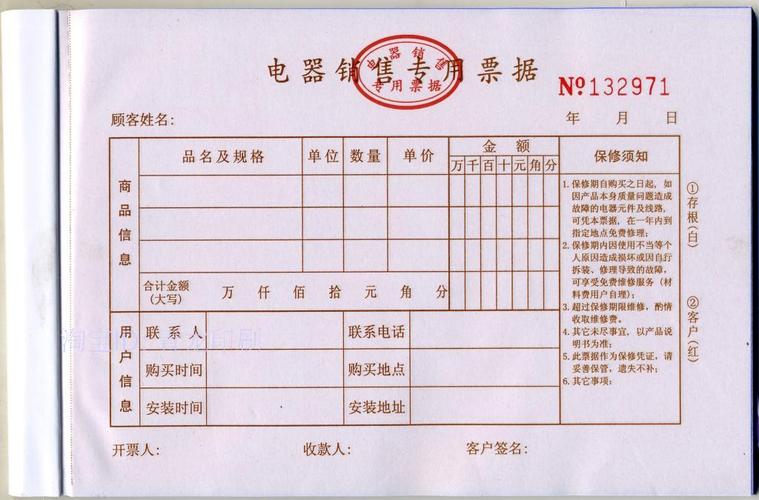 电器销售专用票据
电器销售
专用票据
№132971
顾客姓名：
年 月 日
商品信息
品名及规格 单位 数量 单价 金额 保修须知
万 千 百 十 元 角 分
1.保修期自购买之日起，如
因产品本身质量问题造成
故障的电器元件及线路，
可凭本票据，在一年内到
指定地点免费修理；
2.保修期内因使用不当等个
人原因造成损坏或因自行
拆装、修理导致的故障，
可享受免费维修服务（材
料费用户自理）；
3.超过保修期限维修，酌情
收取维修费。
4.其它未尽事宜，以产品说
明书为准；
5.此票据作为保修凭证，请
妥善保管，遗失不补；
6.其它事项：
合计金额
（大写） 万 仟 佰 拾 元 角 分
用户信息
联系人 联系电话
购买时间 购买地点
安装时间 安装地址
①存根（白）
②客户（红）
开票人： 收款人： 客户签名：